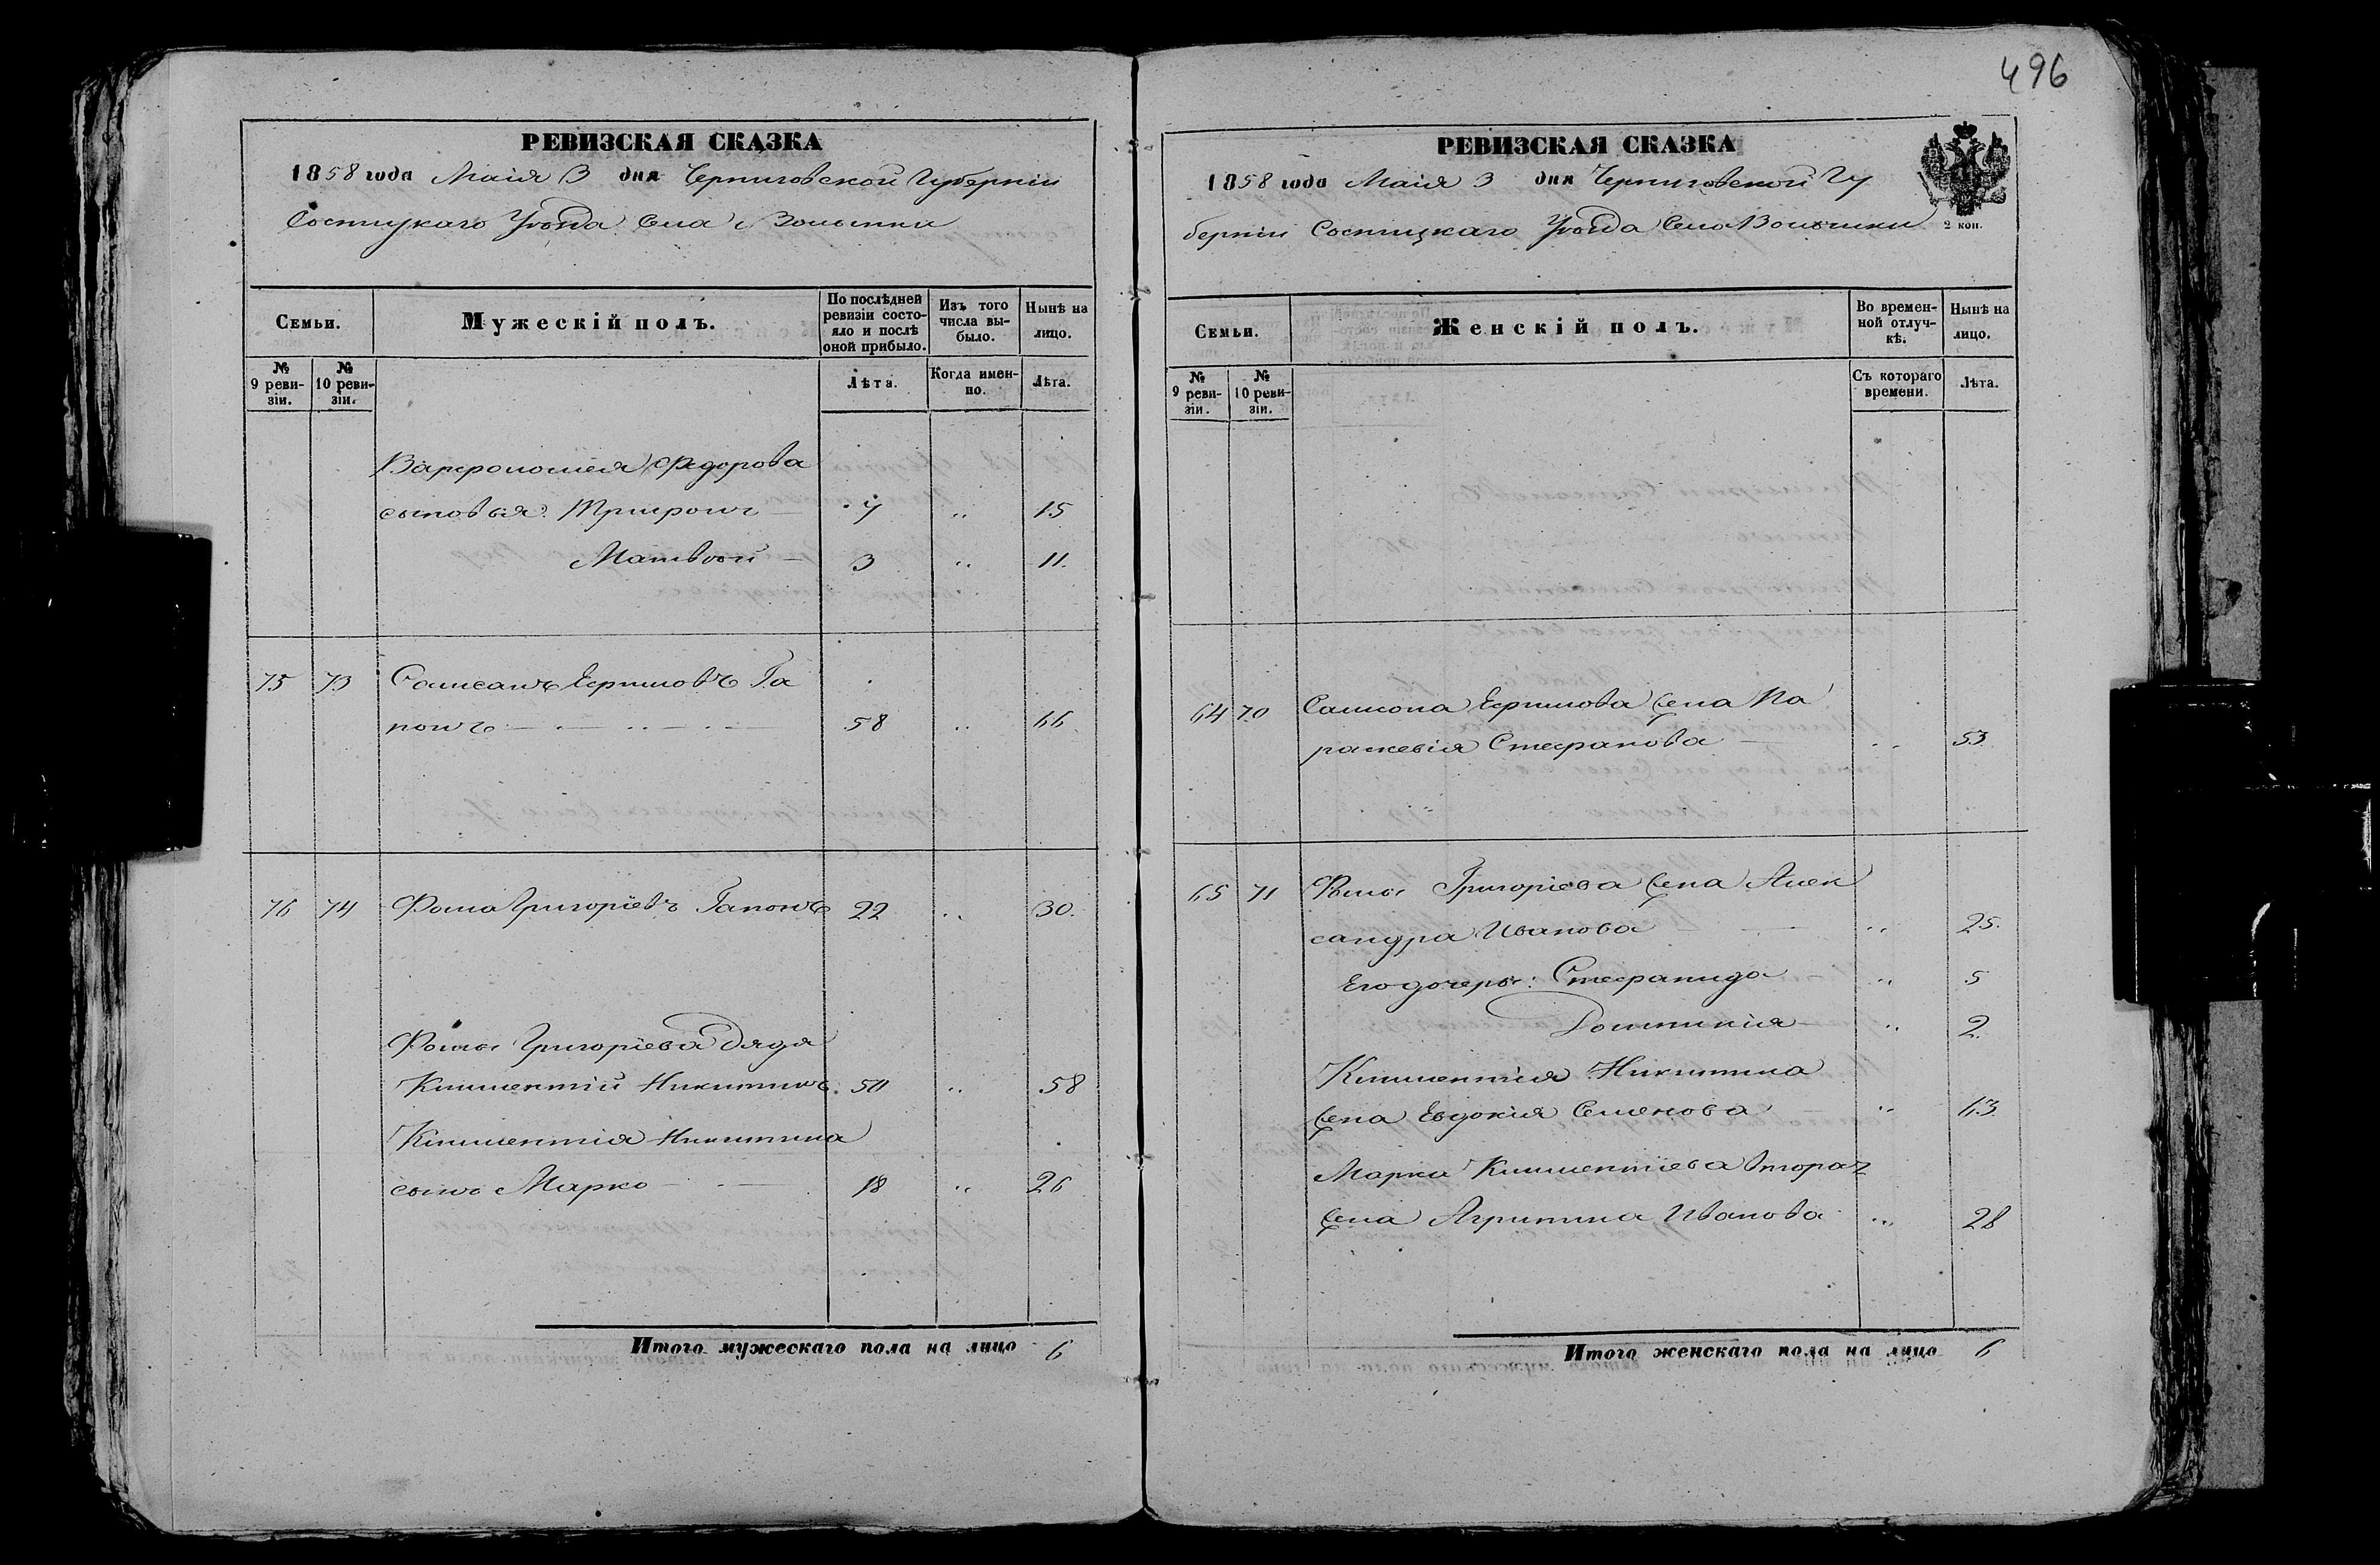 496
РЕВИЗСКАЯ СКАЗКА
1858 года Маія 3 дня Черниговской Губерніи
Сосницкаго Уѣзда Села Волынки
Семьи.
Мужескій полъ.
По послѣдней ревизіи состояло и послѣ оной прибыло.
Изъ того числа выбыло.
Нынѣ на лицо.
№ 9 ревизіи.
№ 10 ревизіи.
Лѣта.
Когда именно.
Лѣта.
Варфоломея Федорова
сыновья: Трифонъ — 7 „ 15
Матвѣй — 3 „ 11.
75 73 Самсонъ Ефимовъ Га
понъ — 58 „ 66
76 74 Фома Григоріевъ Гапонъ 22 „ 30.
Фомы Григоріева дядя
Климентій Никитинъ 50 „ 58
Климентія Никитина
сынъ Марко — 18 „ 26
Итого мужескаго пола на лицо 6
РЕВИЗСКАЯ СКАЗКА
1858 года Маія 3 дня Черниговской Гу
берніи Сосницкаго Уѣзда Села Волынки
2 коп.
Семьи.
Женскій полъ.
Во временной отлучкѣ.
Нынѣ на лицо.
№ 9 ревизіи.
№ 10 ревизіи.
Съ котораго времени.
Лѣта.
64 70 Самсона Ефимова жена Па
раскевія Стефанова — „ 53
65 71 Фомы Григоріева жена Алек
сандра Иванова — „ 25.
Его дочери: Стефанида „ 5
Домникія — „ 2.
Климентія Никитина
жена Евдокія Семенова „ 63
Марка Климентіева вторая
жена Агрипина Иванова „ 28
Итого женскаго пола на лицо 6